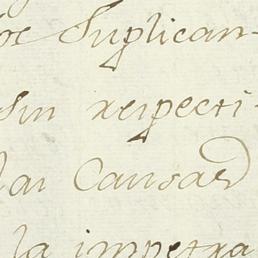 os Suplican-
sin respecti-
las Causas
la impetra